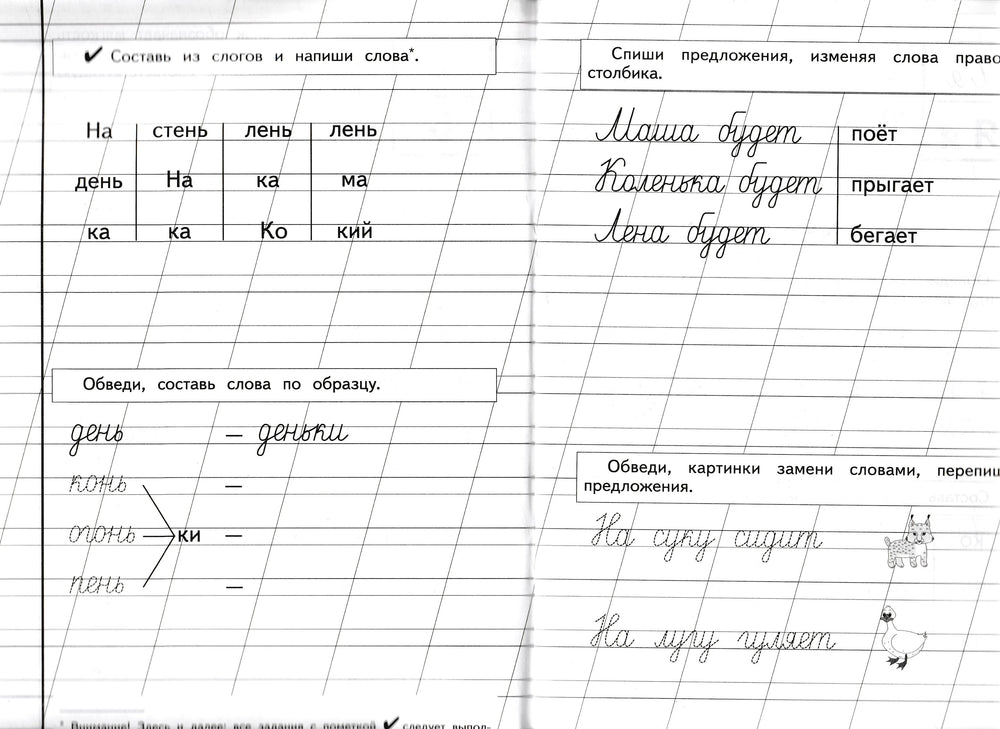 ✔ Составь из слогов и напиши слова*.
На стень лень лень
день На ка ма
ка ка Ко кий
Обведи, составь слова по образцу.
день — деньки
конь —
огонь ки —
пень —
* Внимание! Здесь и далее: все задания с пометкой ✔ следует выпол-
Спиши предложения, изменяя слова право
столбика.
Маша будет поёт
Коленька будет прыгает
Лена будет бегает
Обведи, картинки замени словами, перепиш
предложения.
На суку сидит
На лугу гуляет